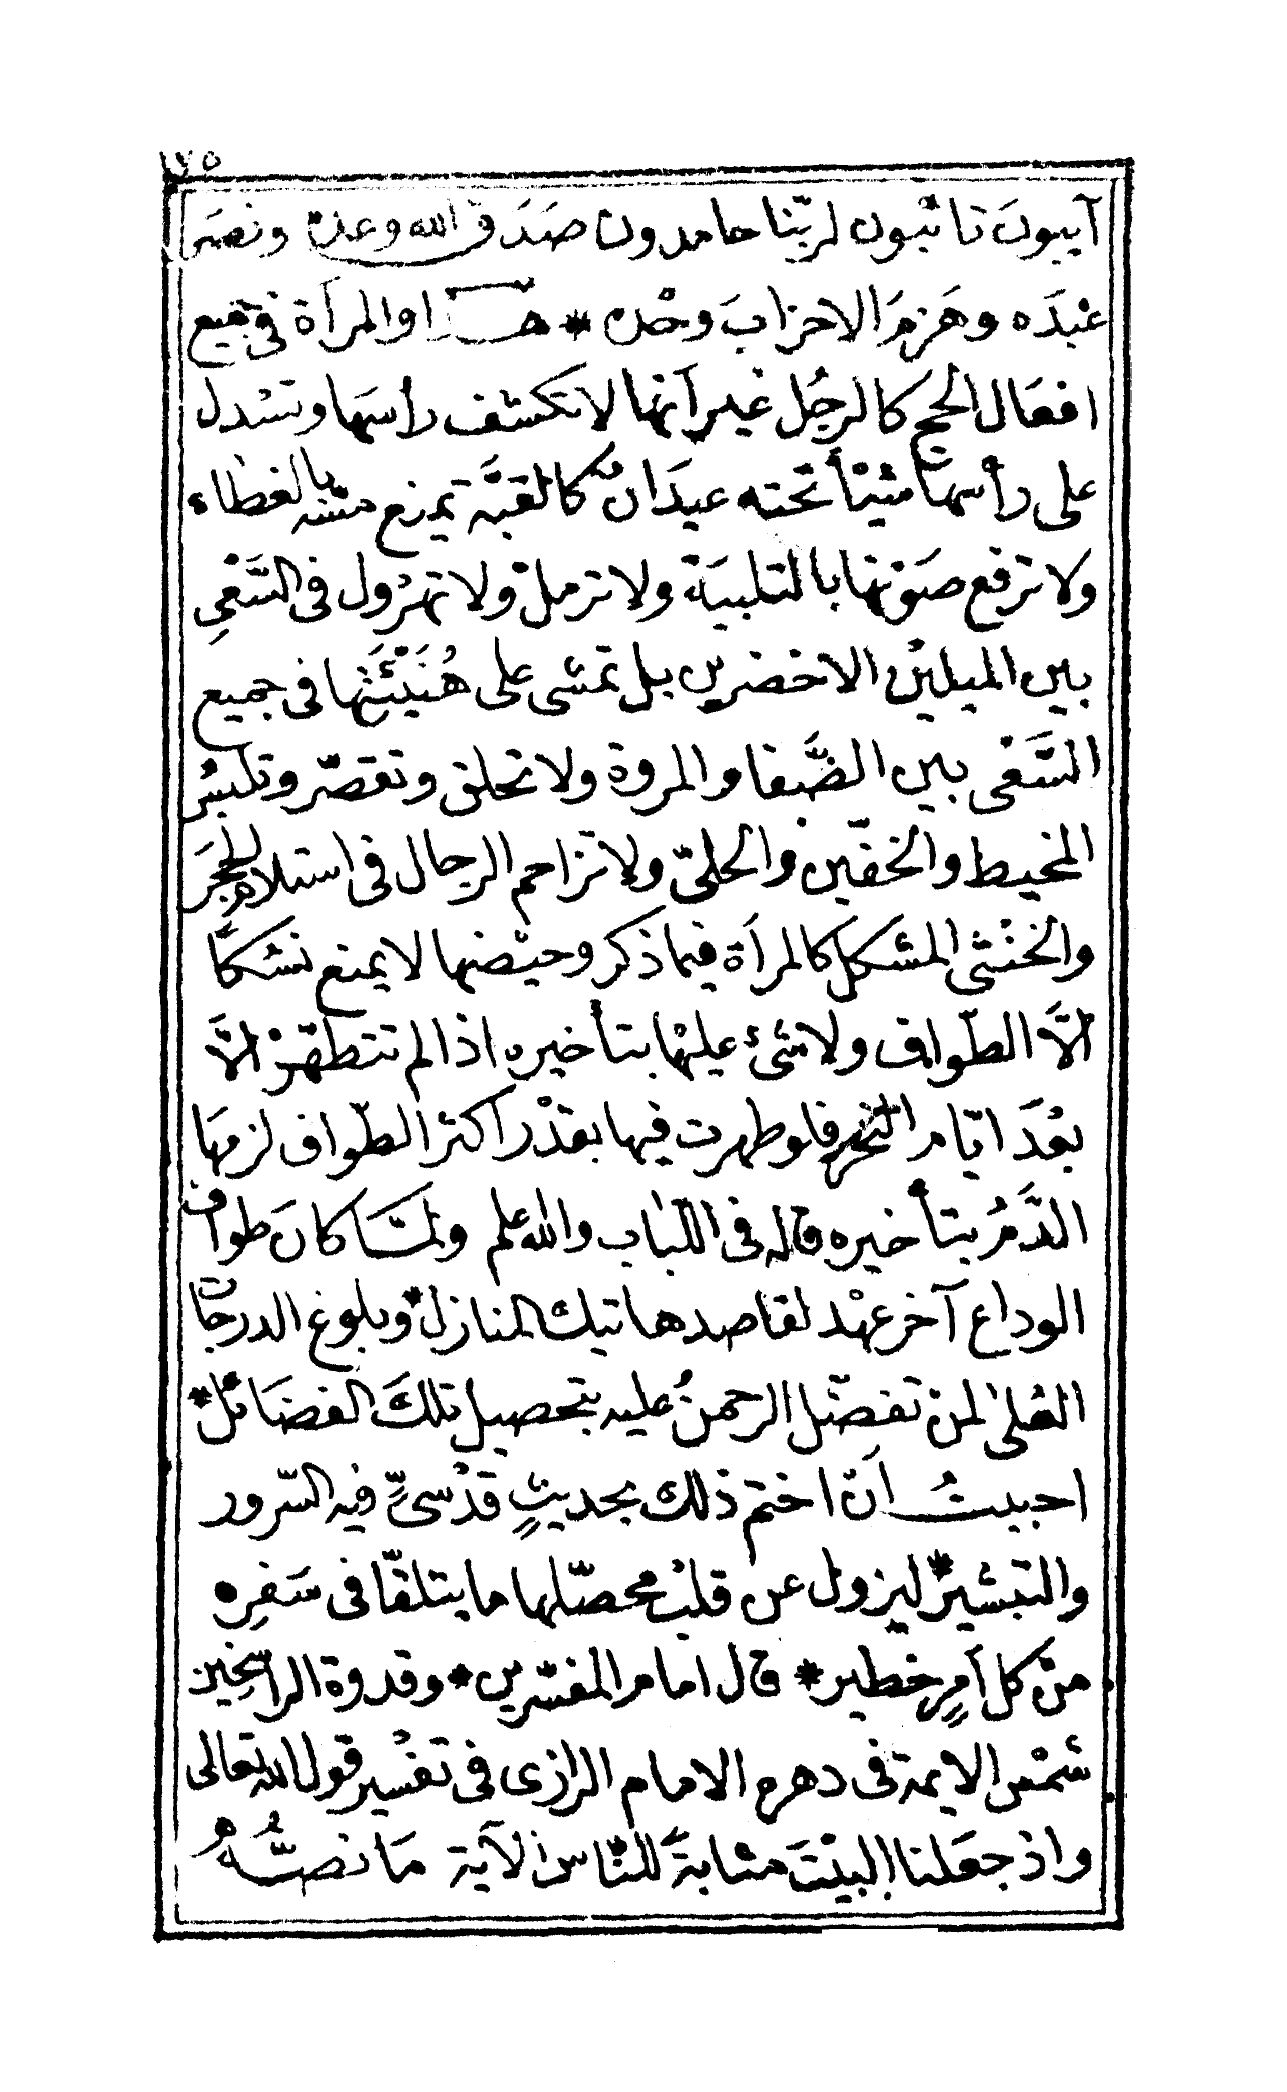 ١٧٥
آيبونَ تائبون لربّنا حامدون صَدَق الله وعده ونصَر
عبْدَه وهَزمَ الاحزابَ وحْده * هـــذا والمرأة فى جميع
افعَال الحج كالرجُل غير أنها لا تكشف رأسَها وتسْدل
على رأسها شيئاً تحته عيدَانٌ كالقبَّة تمنع مسّه بالغطاء
ولا ترفع صَوْتها بالتلبيَة ولا ترملْ ولا تهرْول فى السَّعْىِ
بين الميلينْ الاخضرين بل تمشى على هُنَيْئَتِها فى جميع
السَّعْى بين الصَّفا والمروة ولا تحلق وتقصّر وتلبسُ
المخيط والخفّين والحلىّ ولا تزاحم الرجال فى استلام الحجَر
والخنْثى المشكل كالمرأة فيما ذكر وحيْضها لا يمنع نسُكًا
الَّا الطّواف ولا شئ عليْها بتأخيره اذا لم تتطهّرْ الَّا
بعْدَ ايّام النحر فلو طهرت فيها بقدْر أكثر الطّواف لزمهَا
الدَّمُ بتأخيره قاله فى اللّباب والله علم ولمّــا كانَ طواف
الوداع آخر عهْد لقاصد هاتيك المنازل * وبلوغ الدرجات
العُلى لمن تفضّل الرحمنُ عليه بتحصيل تلكَ الفضَائل *
احببتُ أنْ اختم ذلك بحديثٍ قدْسىٍّ فيه السّرور
والتبشير * ليزول عن قلب محصّلها ما يتلقّا فى سَفرِه
منْ كل أمرٍ خطير * قال امام المفسّرين * وقدوة الراسخين
شمْس الايمة فى دهره الامام الرازى فى تفْسير قول الله تعالى
واذ جعَلنا البيْتَ مثابةً للنّاس الآية مَا نصُّهُ